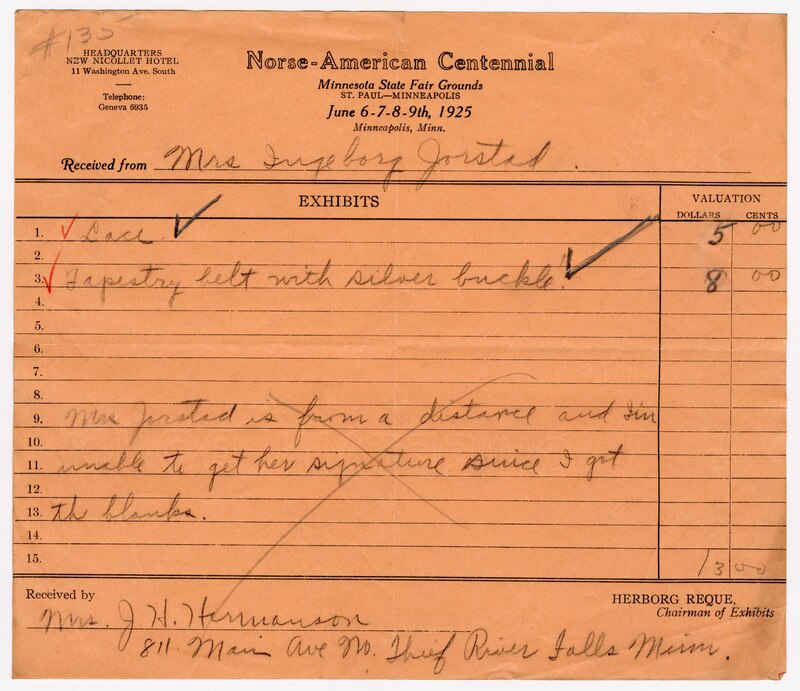 #135
HEADQUARTERS
NEW NICOLLET HOTEL
11 Washington Ave. South
Telephone:
Geneva 6935
Norse-American Centennial
Minnesota State Fair Grounds
ST. PAUL—MINNEAPOLIS
June 6-7-8-9th, 1925
Minneapolis, Minn.
Received from Mrs Ingeborg Jorstad.
EXHIBITS VALUATION
DOLLARS CENTS
1. Lace 5 00
2.
3. Tapestry belt with silver buckle. 8 00
4.
5.
6.
7.
8.
9. Mrs Jorstad is from a distance and I'm
10.
11. unable to get her signature since I got
12.
13. th blanks.
14.
15. 13 00
Received by HERBORG REQUE,
Chairman of Exhibits
Mrs. J. H. Hermanson
811 Main Ave No. Thief River Falls Minn.